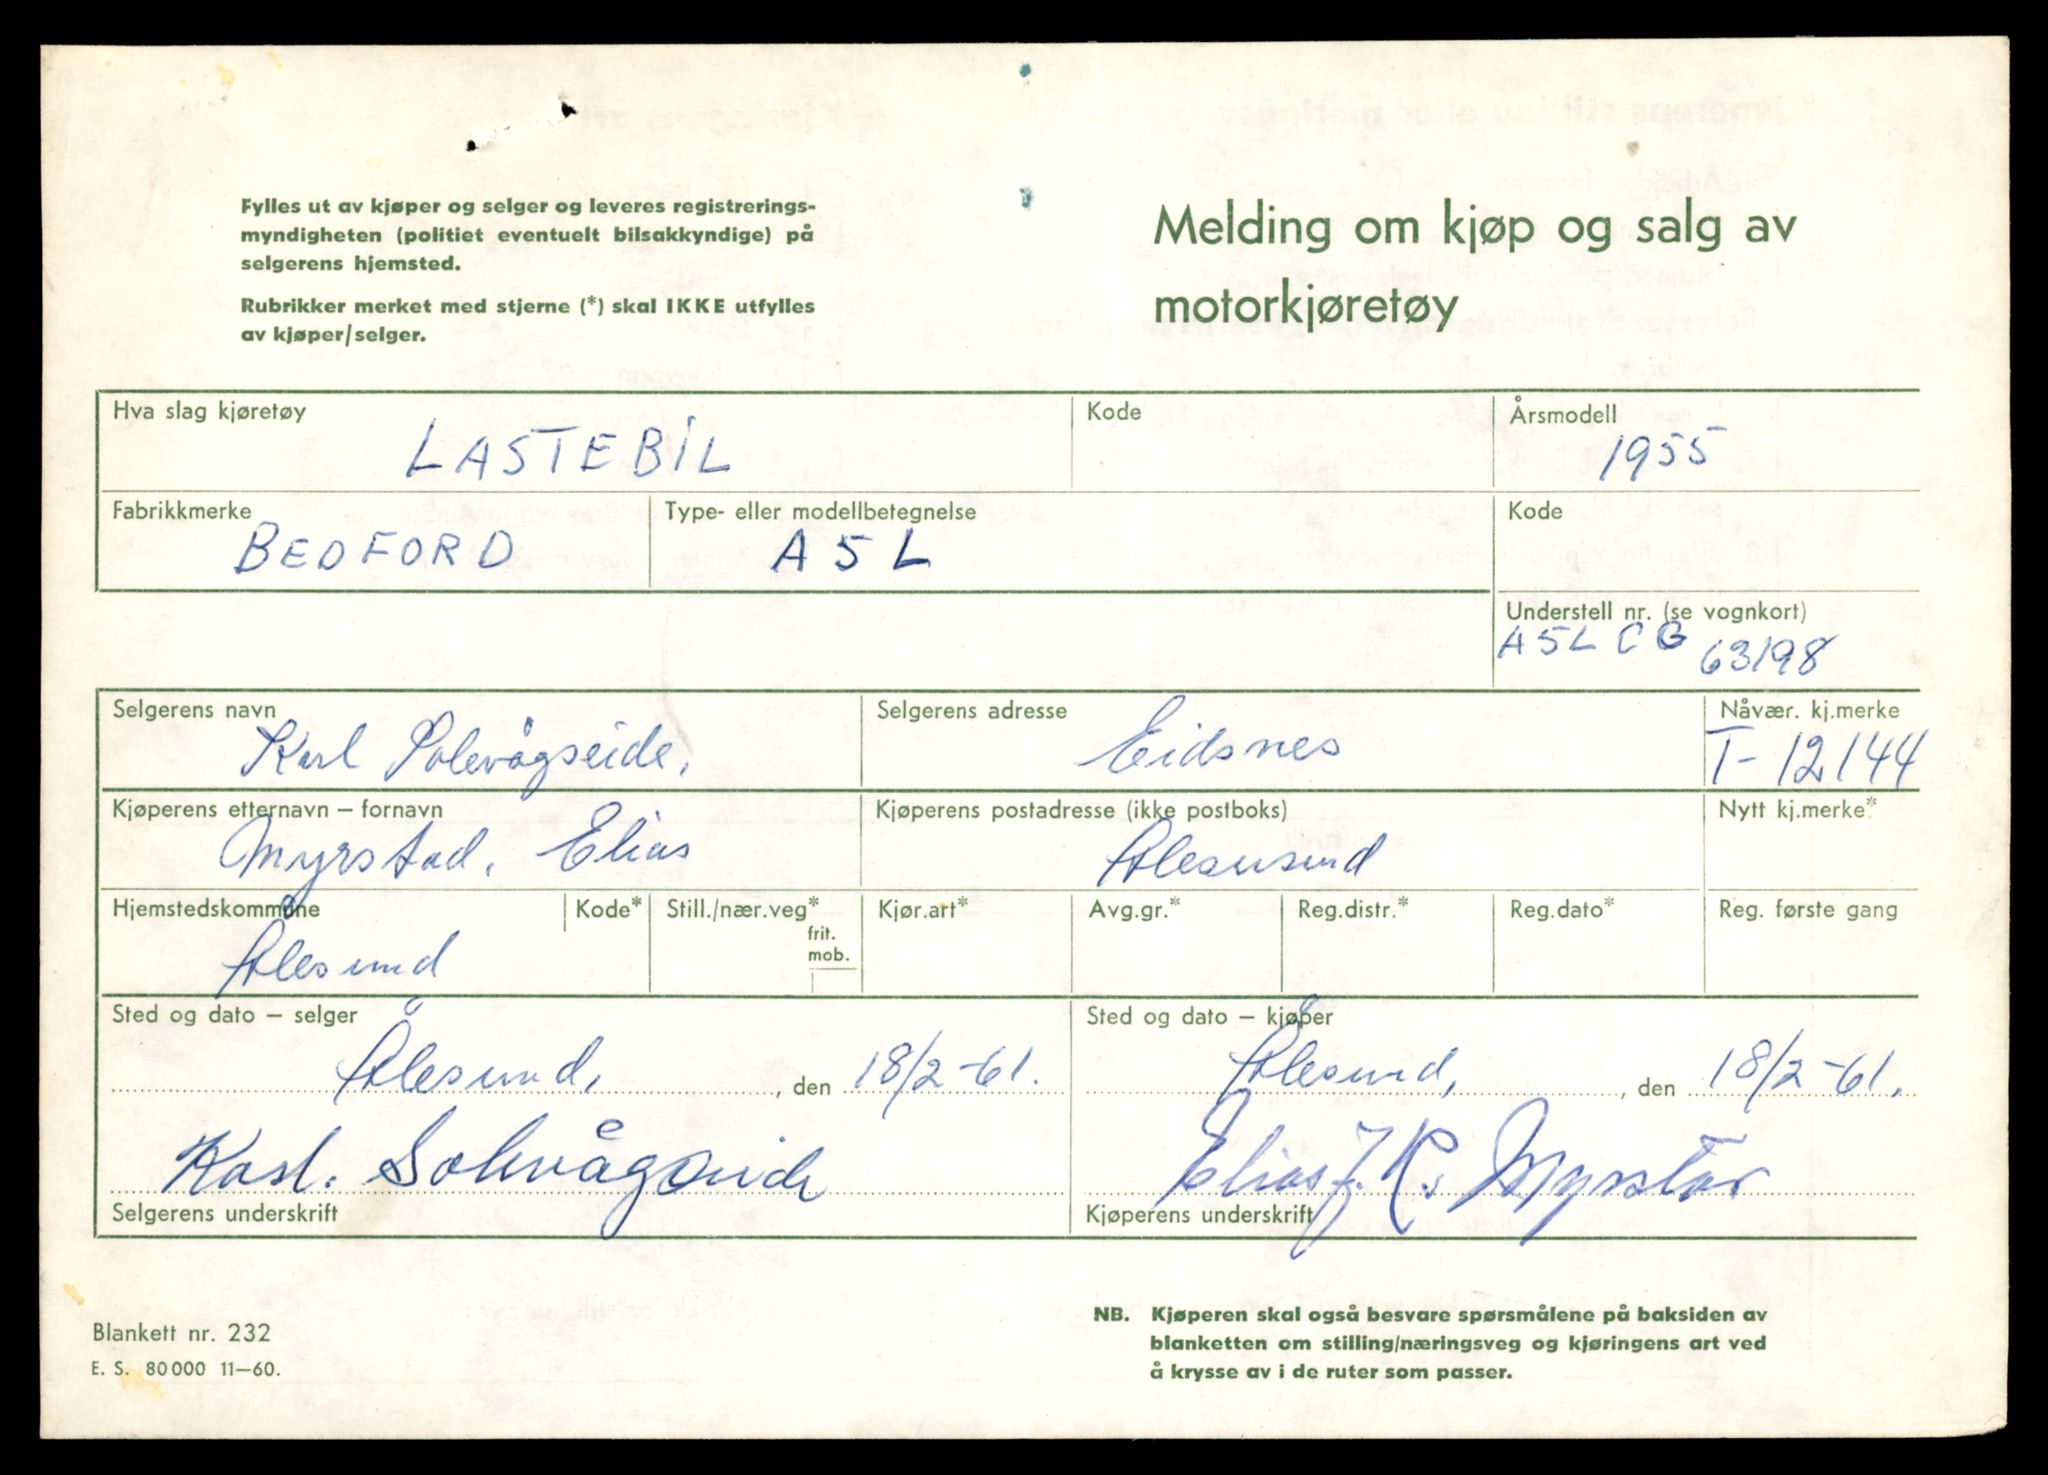 Fylles ut av kjøper og selger og leveres registrerings-
myndigheten (politiet eventuelt bilsakkyndige) på
selgerens hjemsted.
Rubrikker merket med stjerne (*) skal IKKE utfylles
av kjøper/selger.
Melding om kjøp og salg av
motorkjøretøy
Hva slag kjøretøy
LASTEBIL
Kode
Årsmodell
1955
Fabrikkmerke
BEDFORD
Type- eller modellbetegnelse
A5L
Kode
Understell nr. (se vognkort)
A5LCG 63198
Selgerens navn
Karl Solevågseide.
Selgerens adresse
Eidsnes
Nåvær. kj.merke
T-12144
Kjøperens etternavn – fornavn
Myrstad, Elias
Kjøperens postadresse (ikke postboks)
Ålesund
Nytt kj.merke*
Hjemstedskommune
Ålesund
Kode*
Still./nær.veg*
frit.
mob.
Kjør.art*
Avg.gr.*
Reg.distr.*
Reg.dato*
Reg. første gang
Sted og dato – selger
Ålesund, den 18/2-61.
Sted og dato – kjøper
Ålesund, den 18/2-61.
Karl. Solevågseide
Selgerens underskrift
Elias J. K. Myrstad
Kjøperens underskrift
Blankett nr. 232
E. S. 80000 11–60.
NB. Kjøperen skal også besvare spørsmålene på baksiden av
blanketten om stilling/næringsveg og kjøringens art ved
å krysse av i de ruter som passer.